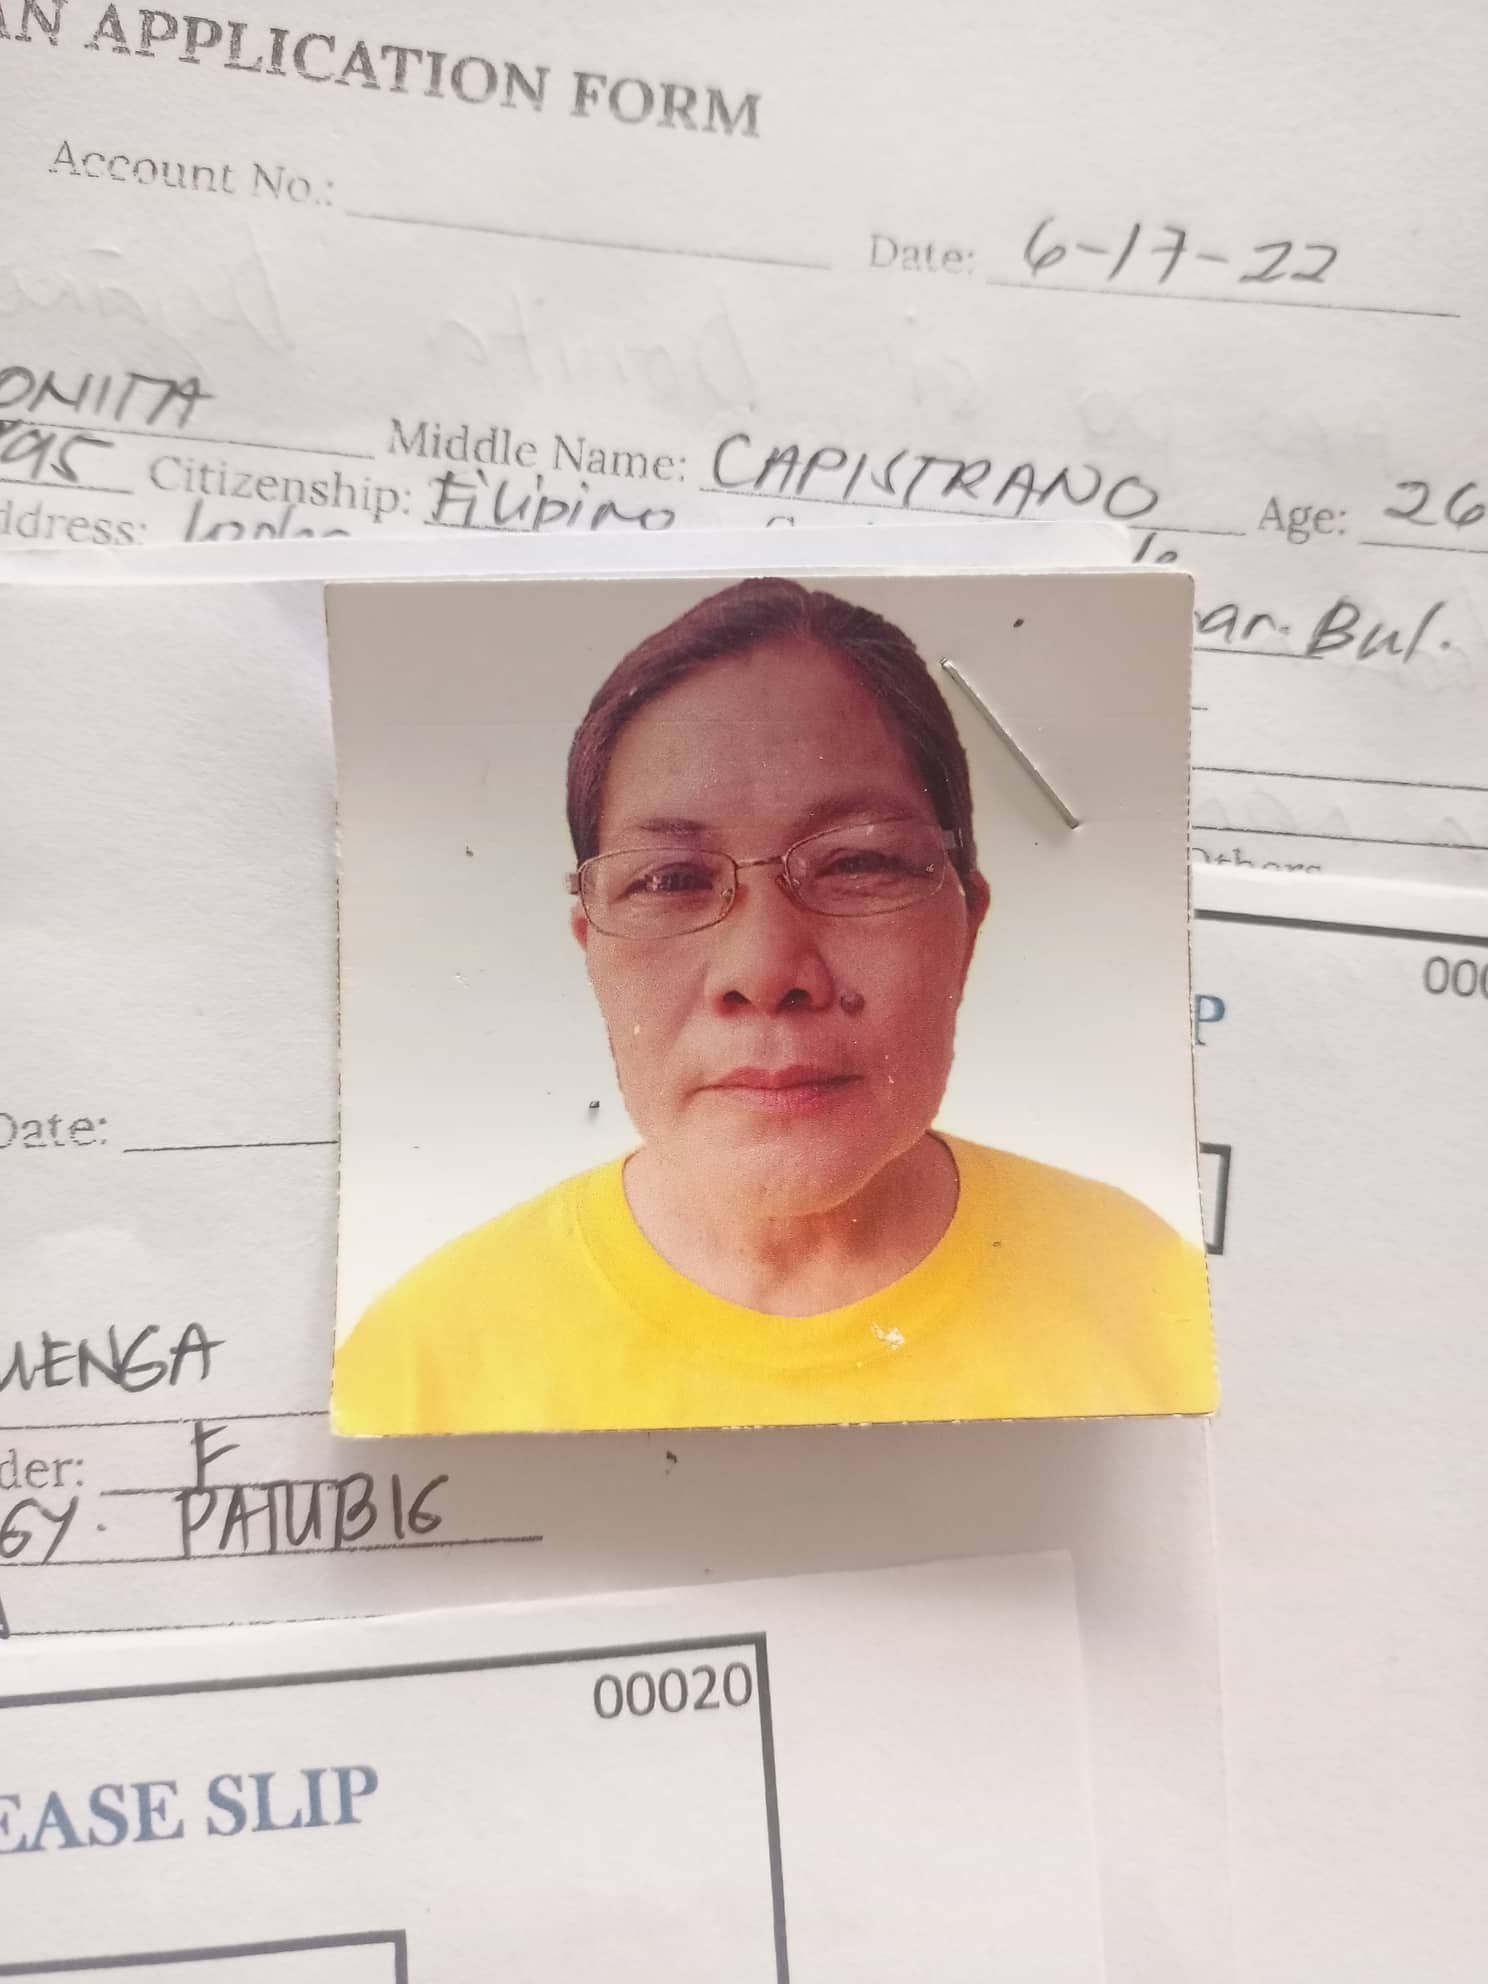 AN APPLICATION FORM
Account No.:
Date: 6-17-22
ONITA Middle Name: CAPISTRANO Age: 26
95 Citizenship: Filipino
ddress:
ar. Bul.
Others
000
P
Date:
UENGA
der: F
GY. PATUBIG
00020
EASE SLIP